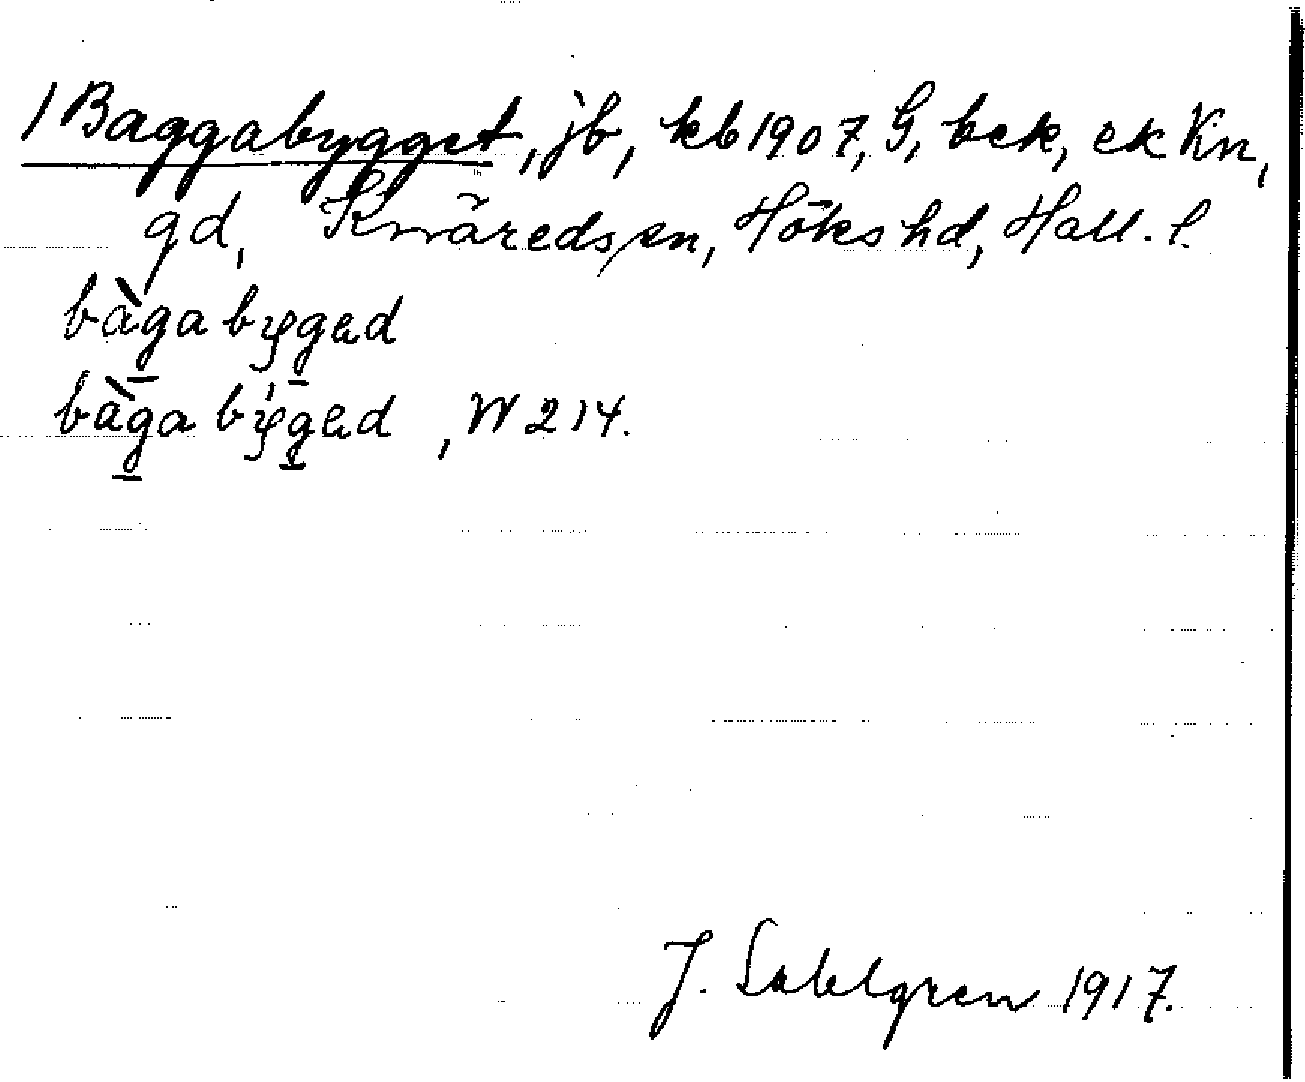 /Baggabygget, jb, kb 1907, G, bek, ek Kn,
gd, Knäreds sn, Höks hd, Hall. l.
bàgabygad
bàgabygad, W 214.
J. Sahlgren 1917.